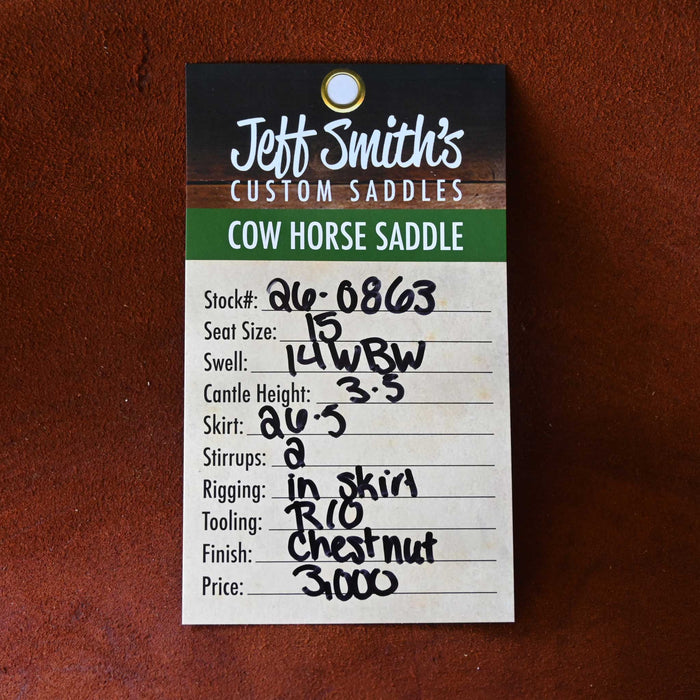 Jeff Smith's
CUSTOM SADDLES
COW HORSE SADDLE
Stock#: 26-0863
Seat Size: 15
Swell: 14WBW
Cantle Height: 3.5
Skirt: 26.5
Stirrups: 2
Rigging: in skirt
Tooling: R10
Finish: Chestnut
Price: 3,000